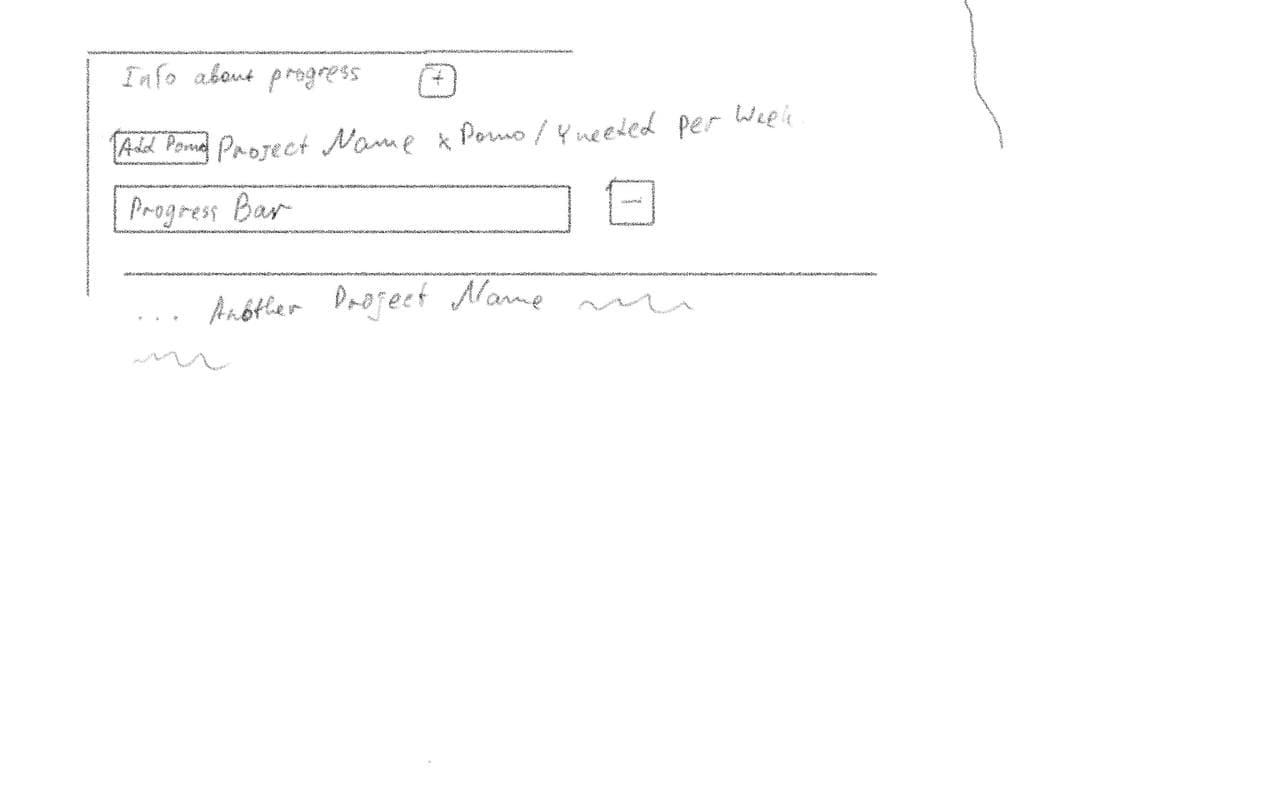 Info about progress +
Add Pomo Project Name x Pomo / Y needed per Week
Progress Bar -
... Another Project Name